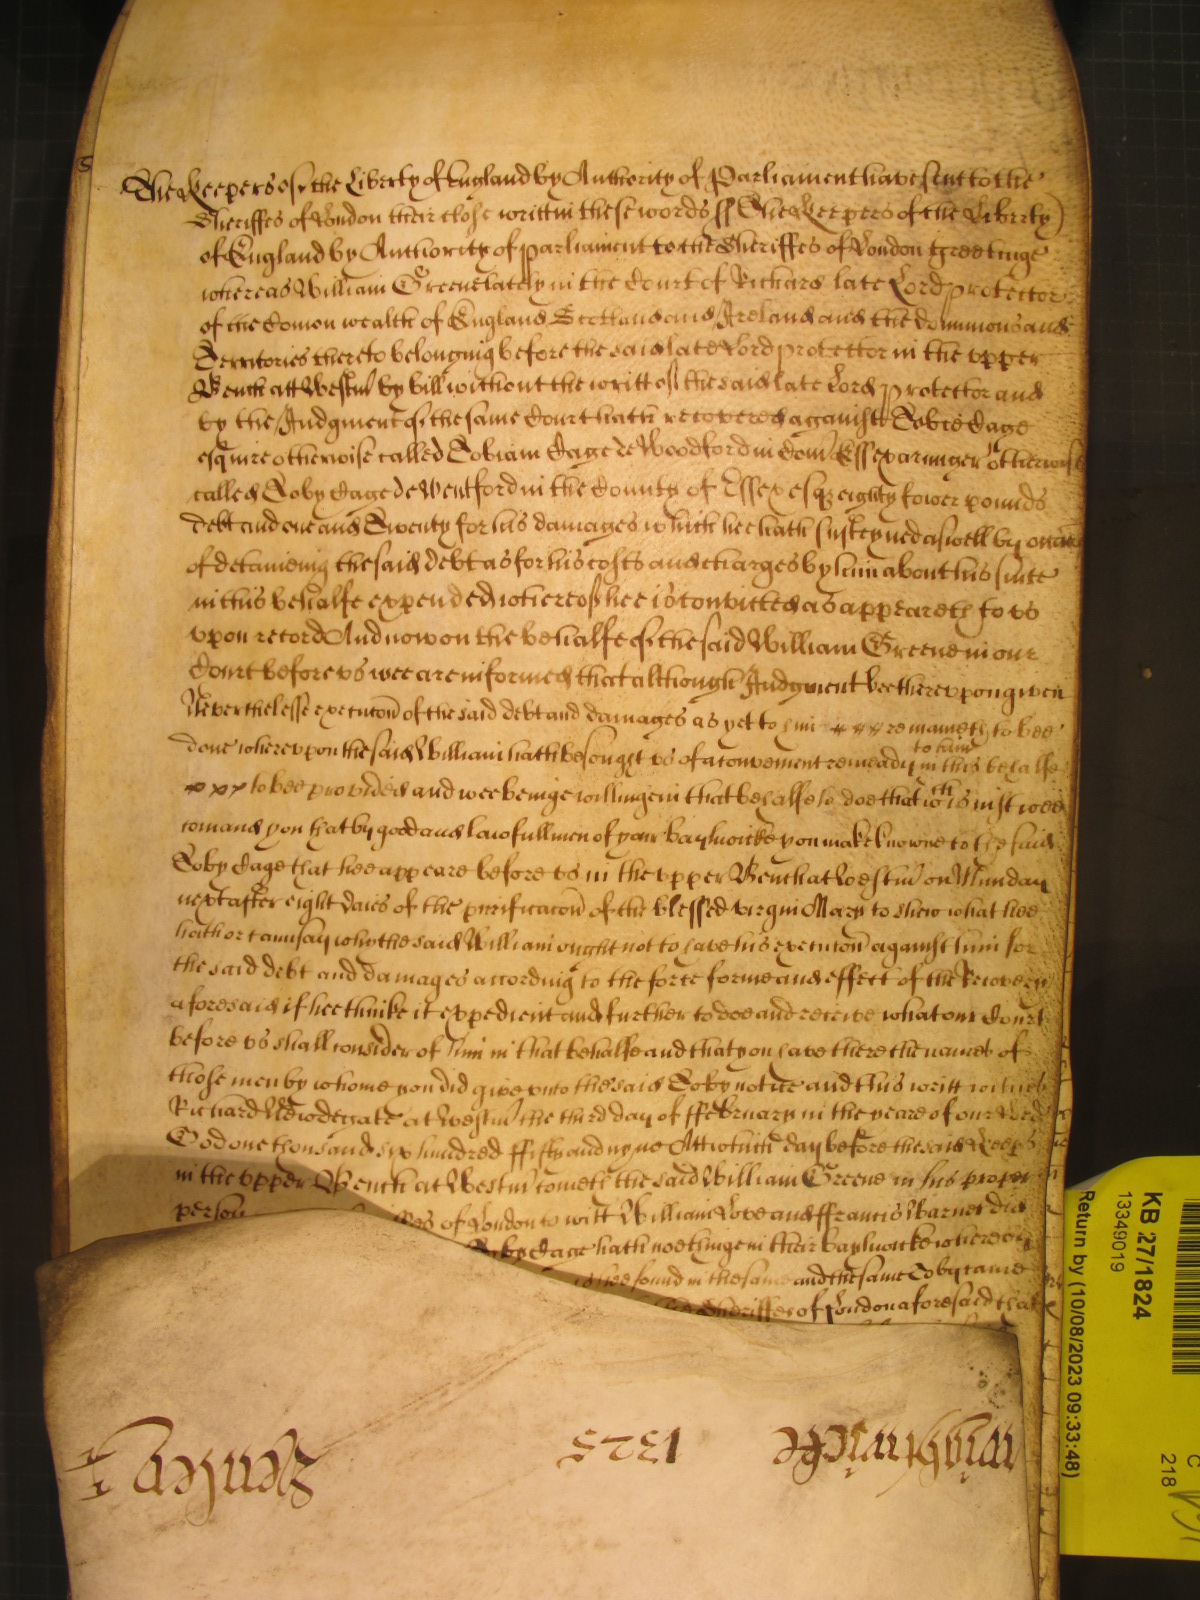 The Keepers of the Liberty of England by Authority of Parliament have sent to the
Sheriffes of London their close writt in these words ss The Keepers of the Liberty
of England by Authority of Parliament to the Sheriffes of London greetinge
whereas William Greene lately in the Court of Richard late Lord protector
of the Comon wealth of England Scotland and Ireland and the dominions and
Territories thereto belonging before the said late Lord protector in the upper
Bench att Westm by bill without the writt of the said late Lord protector and
by the Judgment of the same Court hath recovered against Tobie Cage
esquire otherwise called Tobiam Cage de Woodford in Com Essex armiger otherwise
called Toby Cage de Wentford in the County of Essex esq eighty fower pounds
debt and one and Twenty for his damages which hee hath susteyned aswell by
of deteineing the said debt as for his costs and charges by him about his suite
in this behalfe expended whereof hee is convicted as appeareth to vs
vpon record And now on the behalfe of the said William Greene in our
Court before vs wee are informed that although Judgment bee therevpon given
Neverthelesse execucon of the said debt and damages as yet to him remaineth to bee
done wherevpon the said William hath besought vs of a convenient remeady to him in this behalfe
to bee provided and wee beinge willinge in that behalfe to doe that wch is just wee
comand you that by good and lawfull men of your bayliwicke you make knowne to the said
Toby Cage that hee appeare before vs in the vpper Bench at Westm on Munday
next after eight daies of the purificacon of the blessed virgin Mary to shew what hee
hath or can say why the said William ought not to have his execucon against him for
the said debt and damages according to the force forme and effect of the Recovery
aforesaid if hee thinke it expedient and further to doe and receive what our Court
before vs shall consider of him in that behalfe and that you have there the names of
those men by whome you did give vnto the said Toby notice and this writt witnes
Richard Newdegate at Westm the third day of ffebruary in the yeare of our Lord
God one thousand six hundred ffifty and nyne Att which day before the said Keeps
in the vpper Bench at Westm cometh the said William Greene in his proper
person of London to witt William Love and ffrancis Warner did
Toby Cage hath nothinge in their bayliwicke whereby
is hee found in the same and the same Toby came
Sheriffes of London aforesaid that
1323
KB 27/1824
13349019
Return by (10/08/2023 09:33:48)
C
218